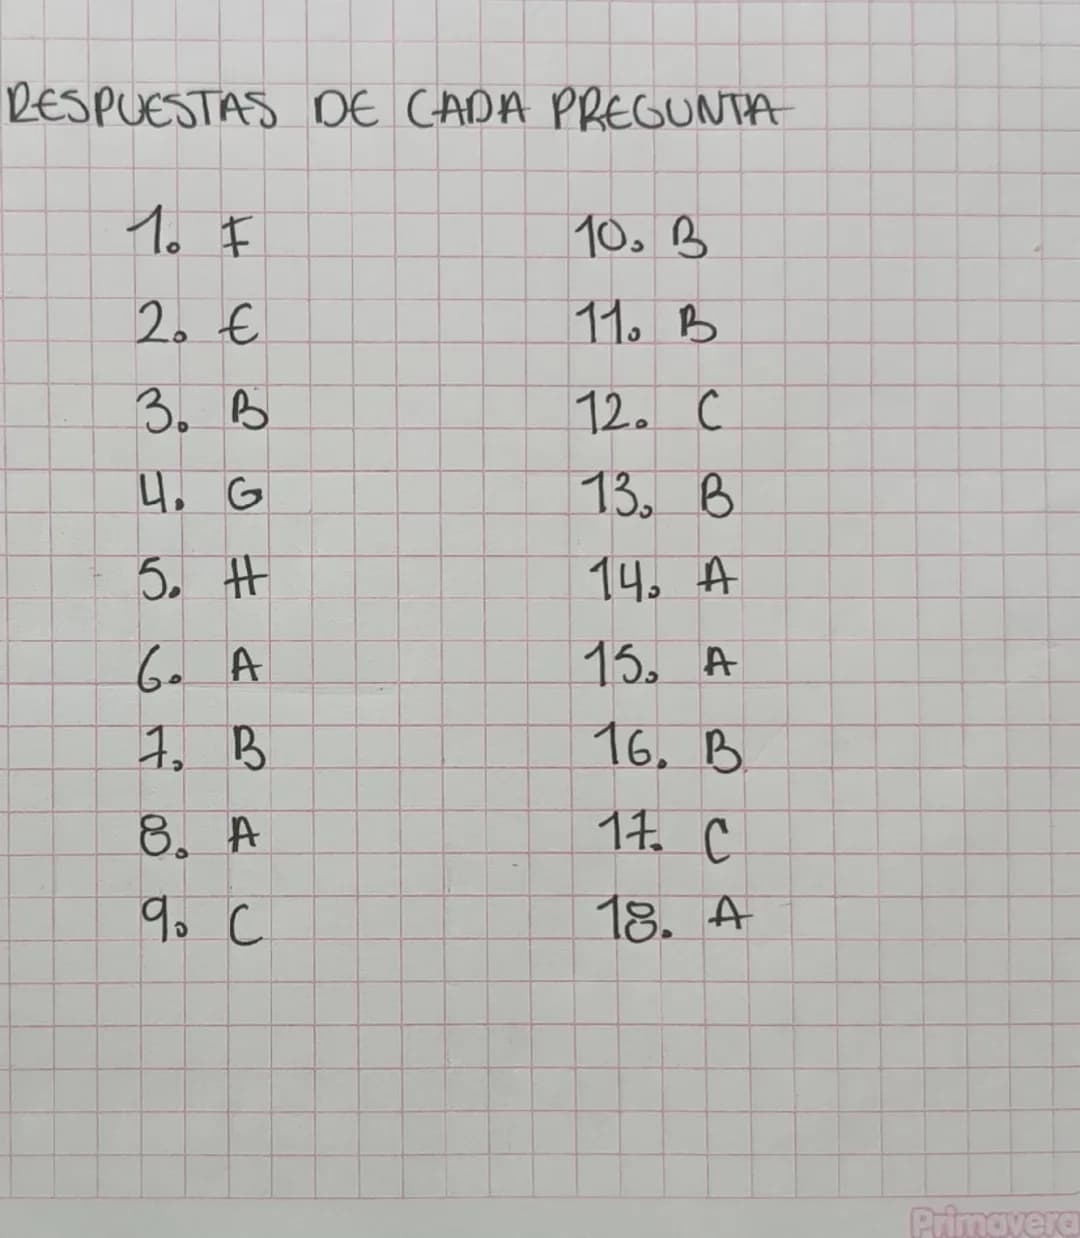 RESPUESTAS DE CADA PREGUNTA
1. F
2. E
3. B
4. G
5. H
6. A
7. B
8. A
9. C
10. B
11. B
12. C
13. B
14. A
15. A
16. B
17. C
18. A
Primavera